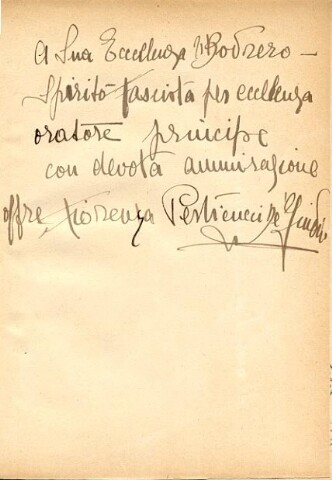 A Sua Eccellenza Bodrero -
Spirito fascista per eccellenza
oratore principe
con devota ammirazione
offre Fiorenza Perticucci de' Giudici